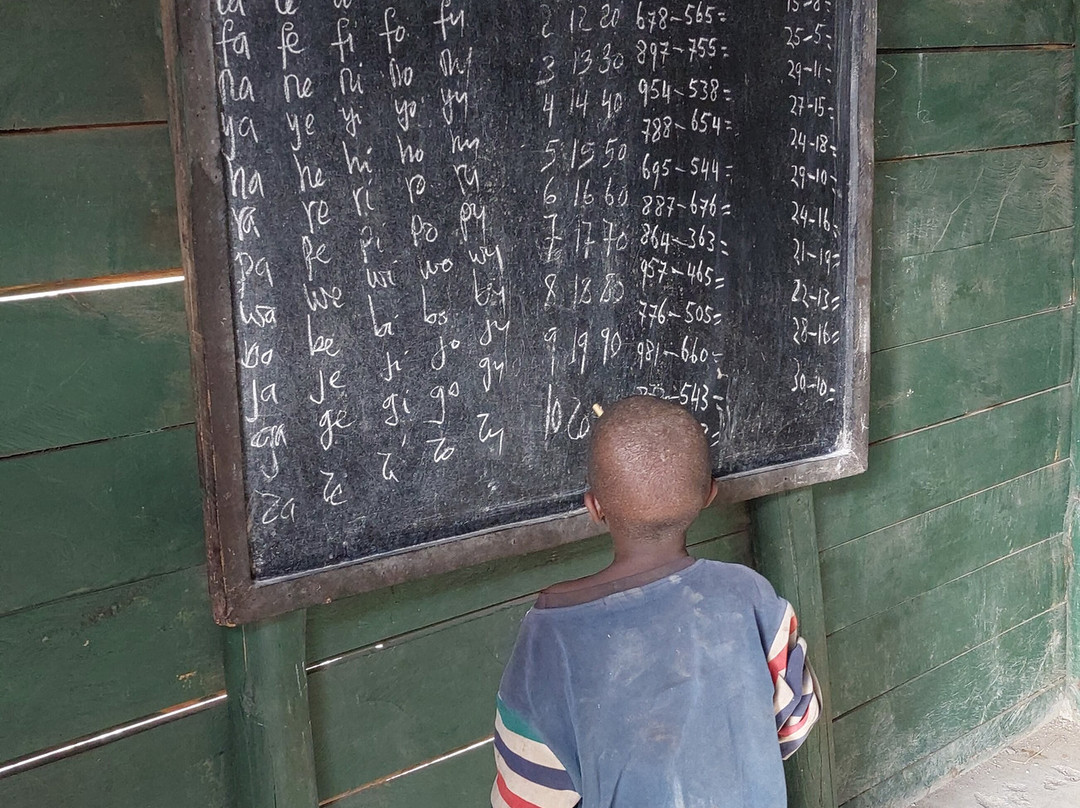 fa fe fi fo fy
na ne ni no ny
ya ye yi yo yy
ha he hi ho hy
ra re ri ro ry
pa pe pi po py
wa we wi wo wy
ba be bi bo by
ja je ji jo jy
ga ge gi go gy
za ze zi zo zy
2 12 20
3 13 30
4 14 40
5 15 50
6 16 60
7 17 70
8 18 80
9 19 90
10 20
678-565=
897-755=
954-538=
788-654=
695-544=
887-676=
864-363=
957-465=
776-505=
981-660=
-543=
15-8=
25-5=
29-11=
27-15=
24-18=
29-10=
24-16=
21-19=
22-13=
28-16=
30-10=